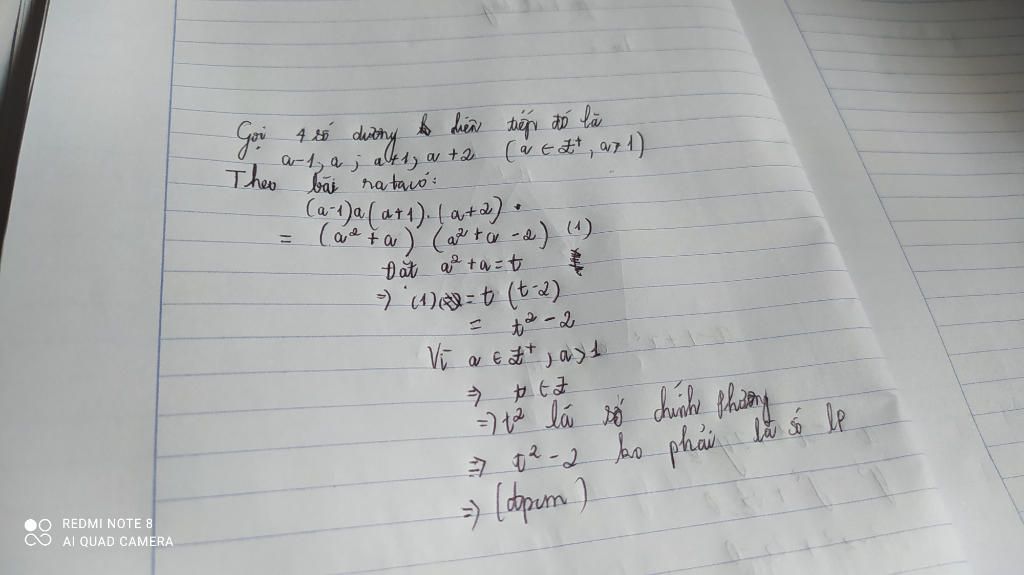 Gọi 4 số dương liên tiếp đó là
a-1, a ; a+1, a+2 (a ∈ Z⁺, a>1)
Theo bài ra ta có:
(a-1)a(a+1).(a+2)
= (a² + a) (a² + a - 2) (1)
Đặt a² + a = t
=> (1) = t (t-2)
= t² - 2
Vì a ∈ Z⁺, a>1
=> t ∈ Z
=> t² là số chính phương
=> t² - 2 ko phải là số lp
=> (đpcm)
REDMI NOTE 8
AI QUAD CAMERA